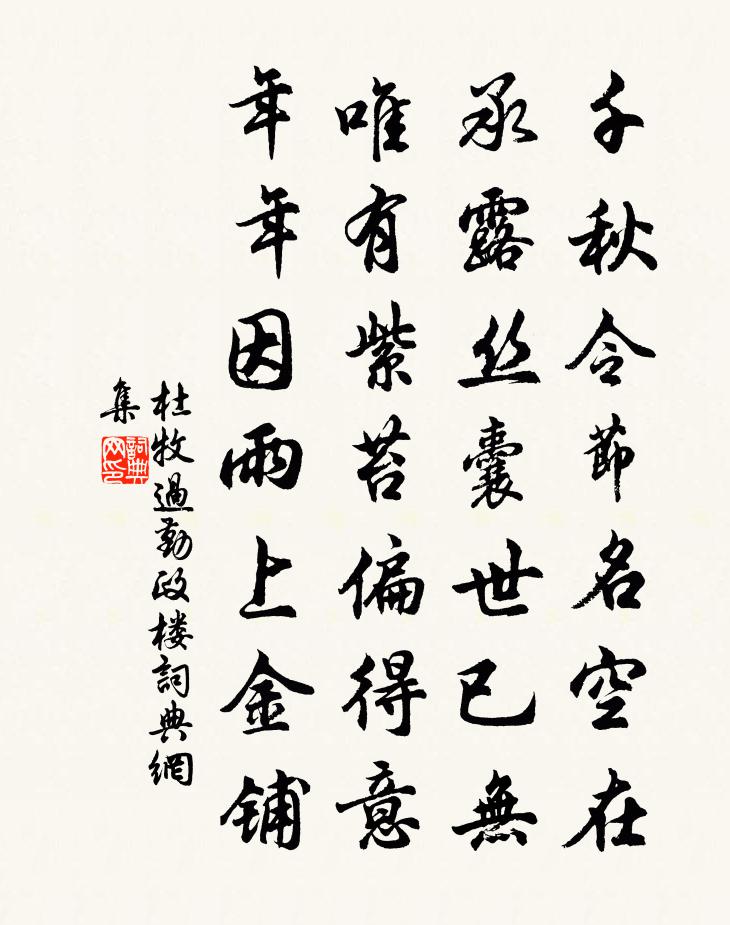 千秋令節名空在
承露丝囊世已無
唯有紫苔偏得意
年年因雨上金铺
杜牧過勤政楼詞典網
集
詞典网印